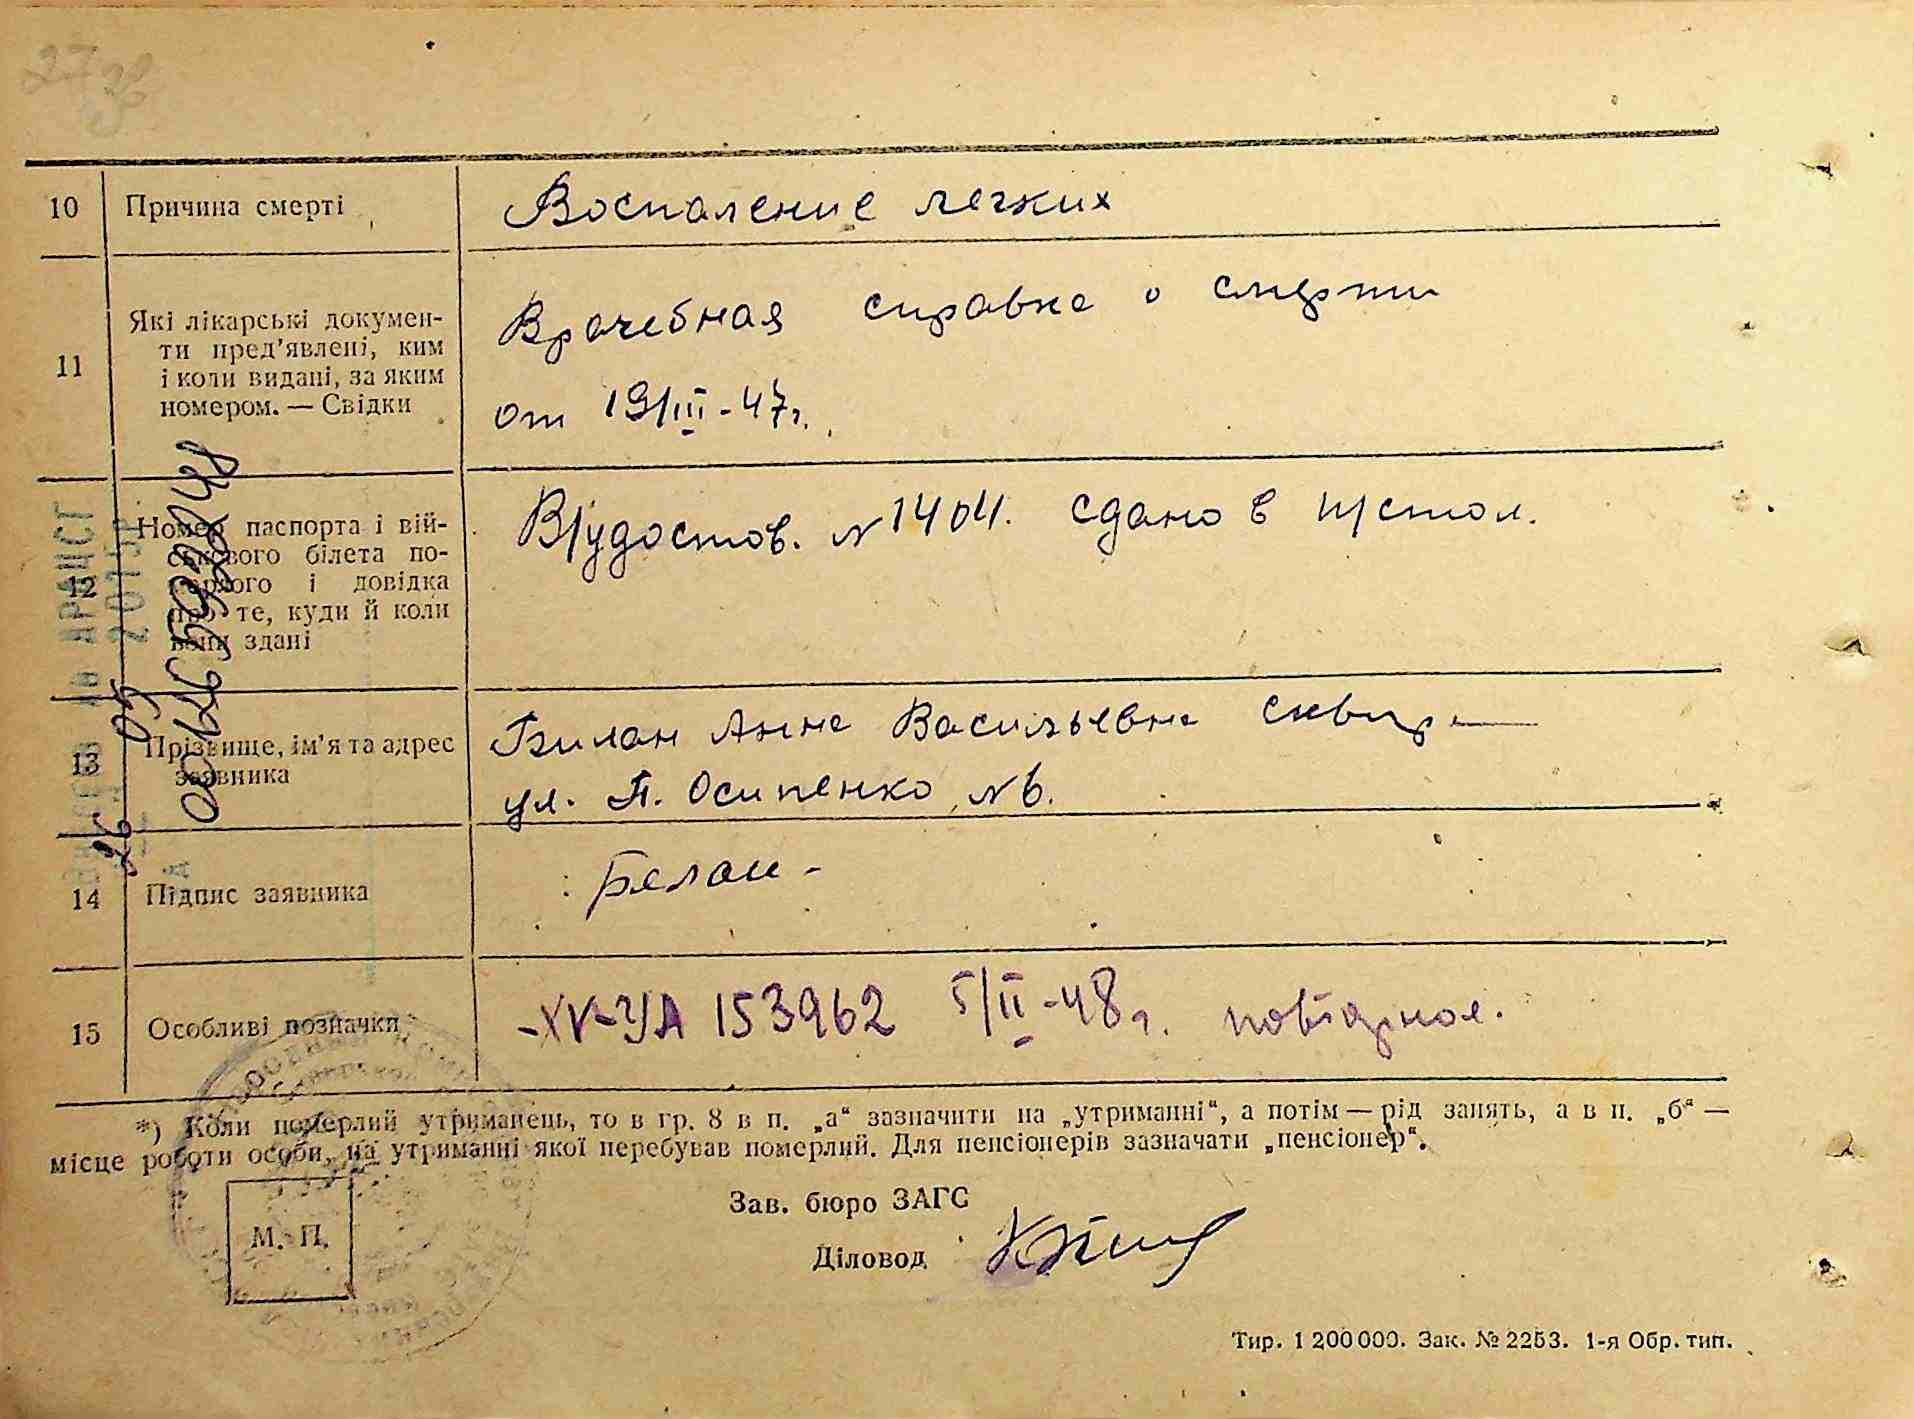 10 Причина смерті Воспаление легких
11 Які лікарські докумен-
ти пред’явлені, ким
і коли видані, за яким
номером. — Свідки
Врачебная справка о смерти
от 19/III-47г.
12 Номер паспорта і вій-
ськового білета по-
мерлого і довідка
про те, куди й коли
вони здані
В/удостов. № 1404. сдано в п/стол.
13 Прізвище, ім’я та адрес
заявника
Билан Анна Васильевна
ул. П. Осипенко, № 6.
14 Підпис заявника Белан -
15 Особливі позначки -XV-УА 153962 5/II-48г. повторное.
*) Коли померлий утриманець, то в гр. 8 в п. „а“ зазначити на „утриманні“, а потім — рід занять, а в п. „б“ —
місце роботи особи, на утриманні якої перебував померлий. Для пенсіонерів зазначати „пенсіонер“.
Зав. бюро ЗАГС
М. П.
Діловод
Тир. 1 200 000. Зак. № 2253. 1-я Обр. тип.